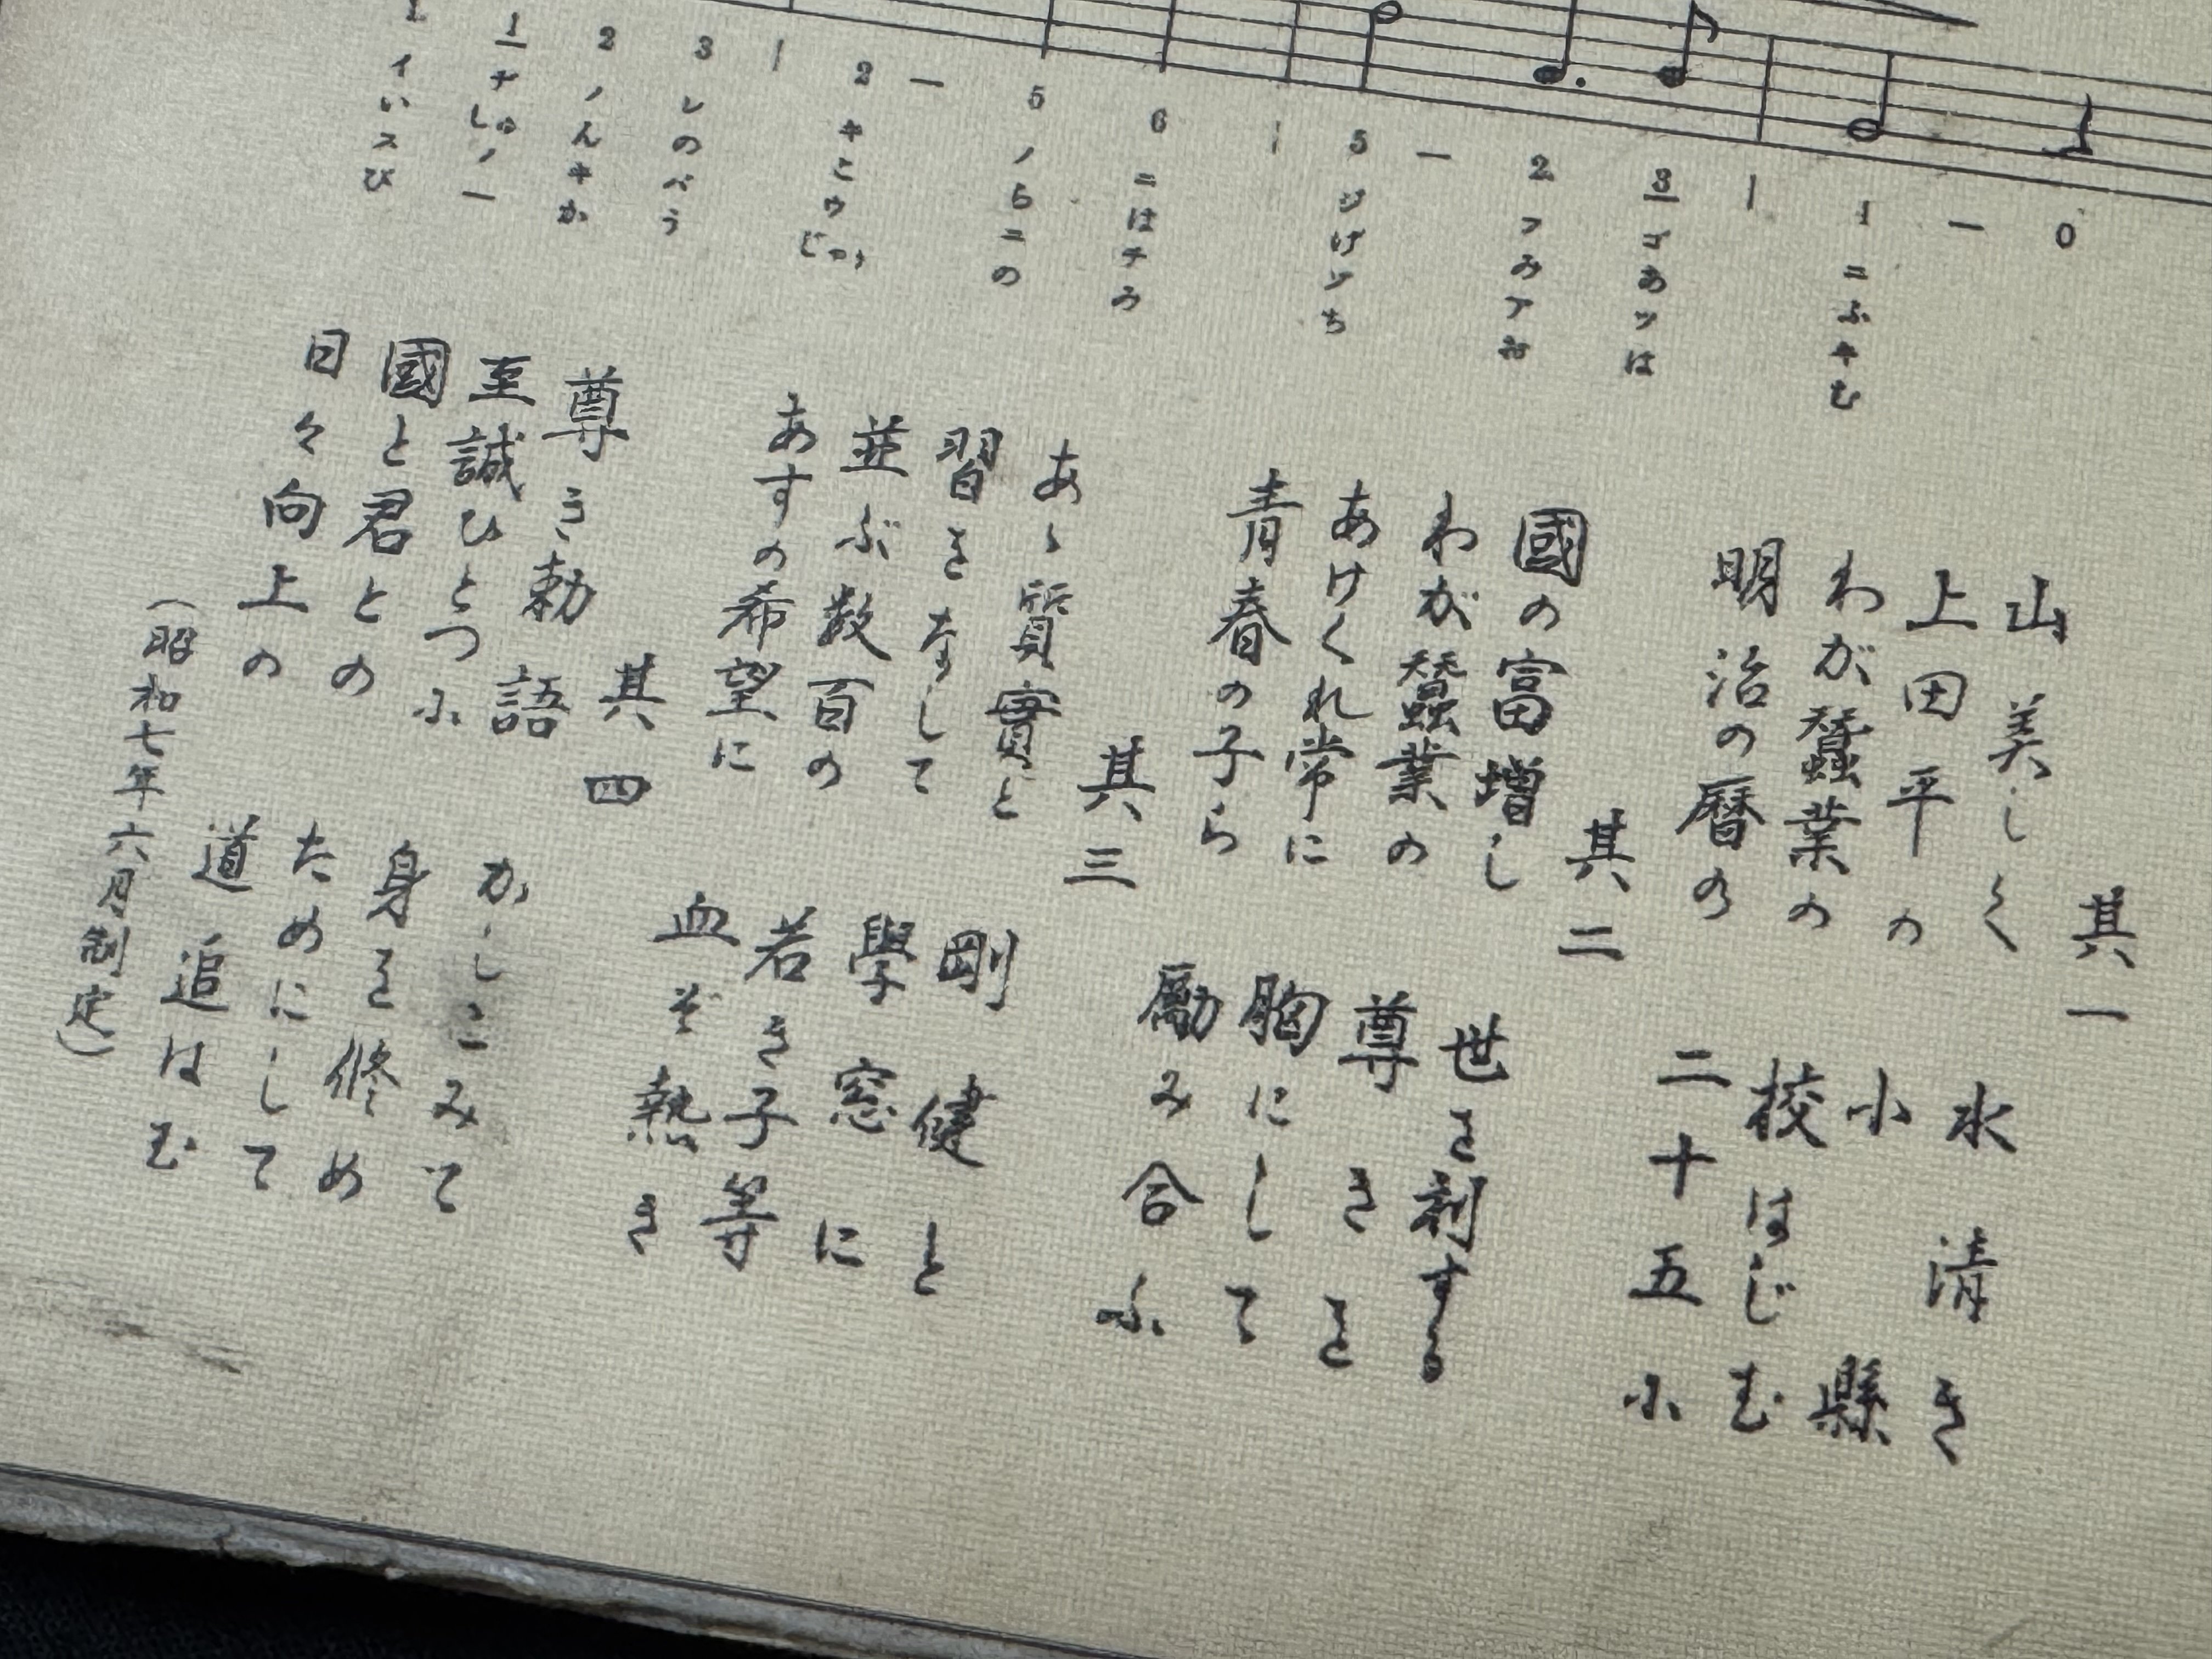 1 イいスび
2 ノんキか
5 ノらニの
6 ニはチみ
5 ジげソち
2 フみアお
3 ゴあツは
1 ニふキむ
0
其一
山美しく 水清き
上田平の 小縣
わが蠶業の 校はじむ
明治の暦の 二十五に
其二
國の富増し 世を利する
わが蠶業の 尊きを
あけくれ常に 胸にして
青春の子ら 勵み合ふ
其三
あゝ質實と 剛健と
習をなして 學窓に
並ぶ数百の 若き子等
あすの希望に 血ぞ熱き
其四
尊き勅語 かしこみて
至誠ひとつに 身を修め
國と君との ためにして
日々向上の 道追はむ
(昭和七年六月制定)